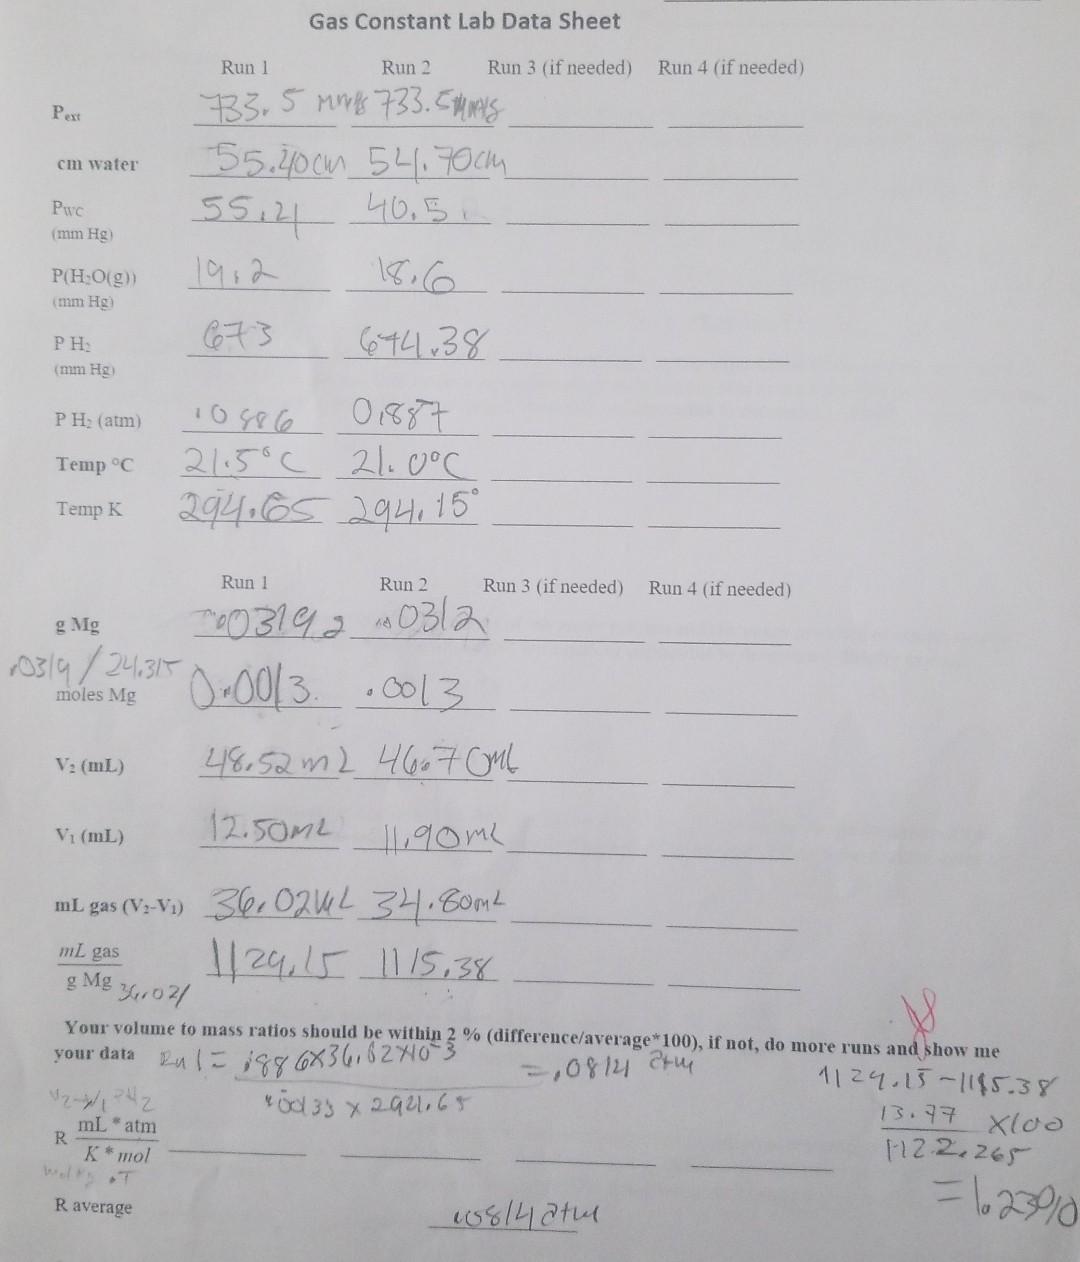 Gas Constant Lab Data Sheet
Run 1 Run 2 Run 3 (if needed) Run 4 (if needed)
Pext 733.5 mmHg 733.5 mmHg
cm water 55.40cm 54.70cm
Pwc 55.21 40.51
(mm Hg)
P(H2O(g)) 19.2 18.6
(mm Hg)
P H2 673 674.38
(mm Hg)
P H2 (atm) 0.887
Temp °C 21.5°C 21.0°C
Temp K 294.65 294.15°
Run 1 Run 2 Run 3 (if needed) Run 4 (if needed)
g Mg .0319 .0312
.0319 / 24.315
moles Mg 0.0013 .0013
V2 (mL) 48.52mL 46.70mL
V1 (mL) 12.50mL 11.90mL
mL gas (V2-V1) 36.02mL 34.80mL
mL gas
g Mg 1129.15 1115.38
36.02/
Your volume to mass ratios should be within 2 % (difference/average*100), if not, do more runs and show me
your data Run 1 = .886x36.02x10-3 = .0814 atm 1129.15-1115.38
.00133 x 294.65
13.77 x100
R mL * atm 1122.265
K * mol
= 1.23%
R average .0814 atm